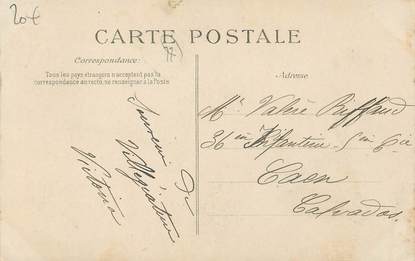 20€
CARTE POSTALE
77
Correspondance:
Tous les pays étrangers n'acceptent pas la
correspondance au recto, se renseigner à la Poste
Adresse
Souvenir de
Villégiature
Victoria
Mr Valère Buffard
36em Infanterie 5em Cie
Caen
Calvados.